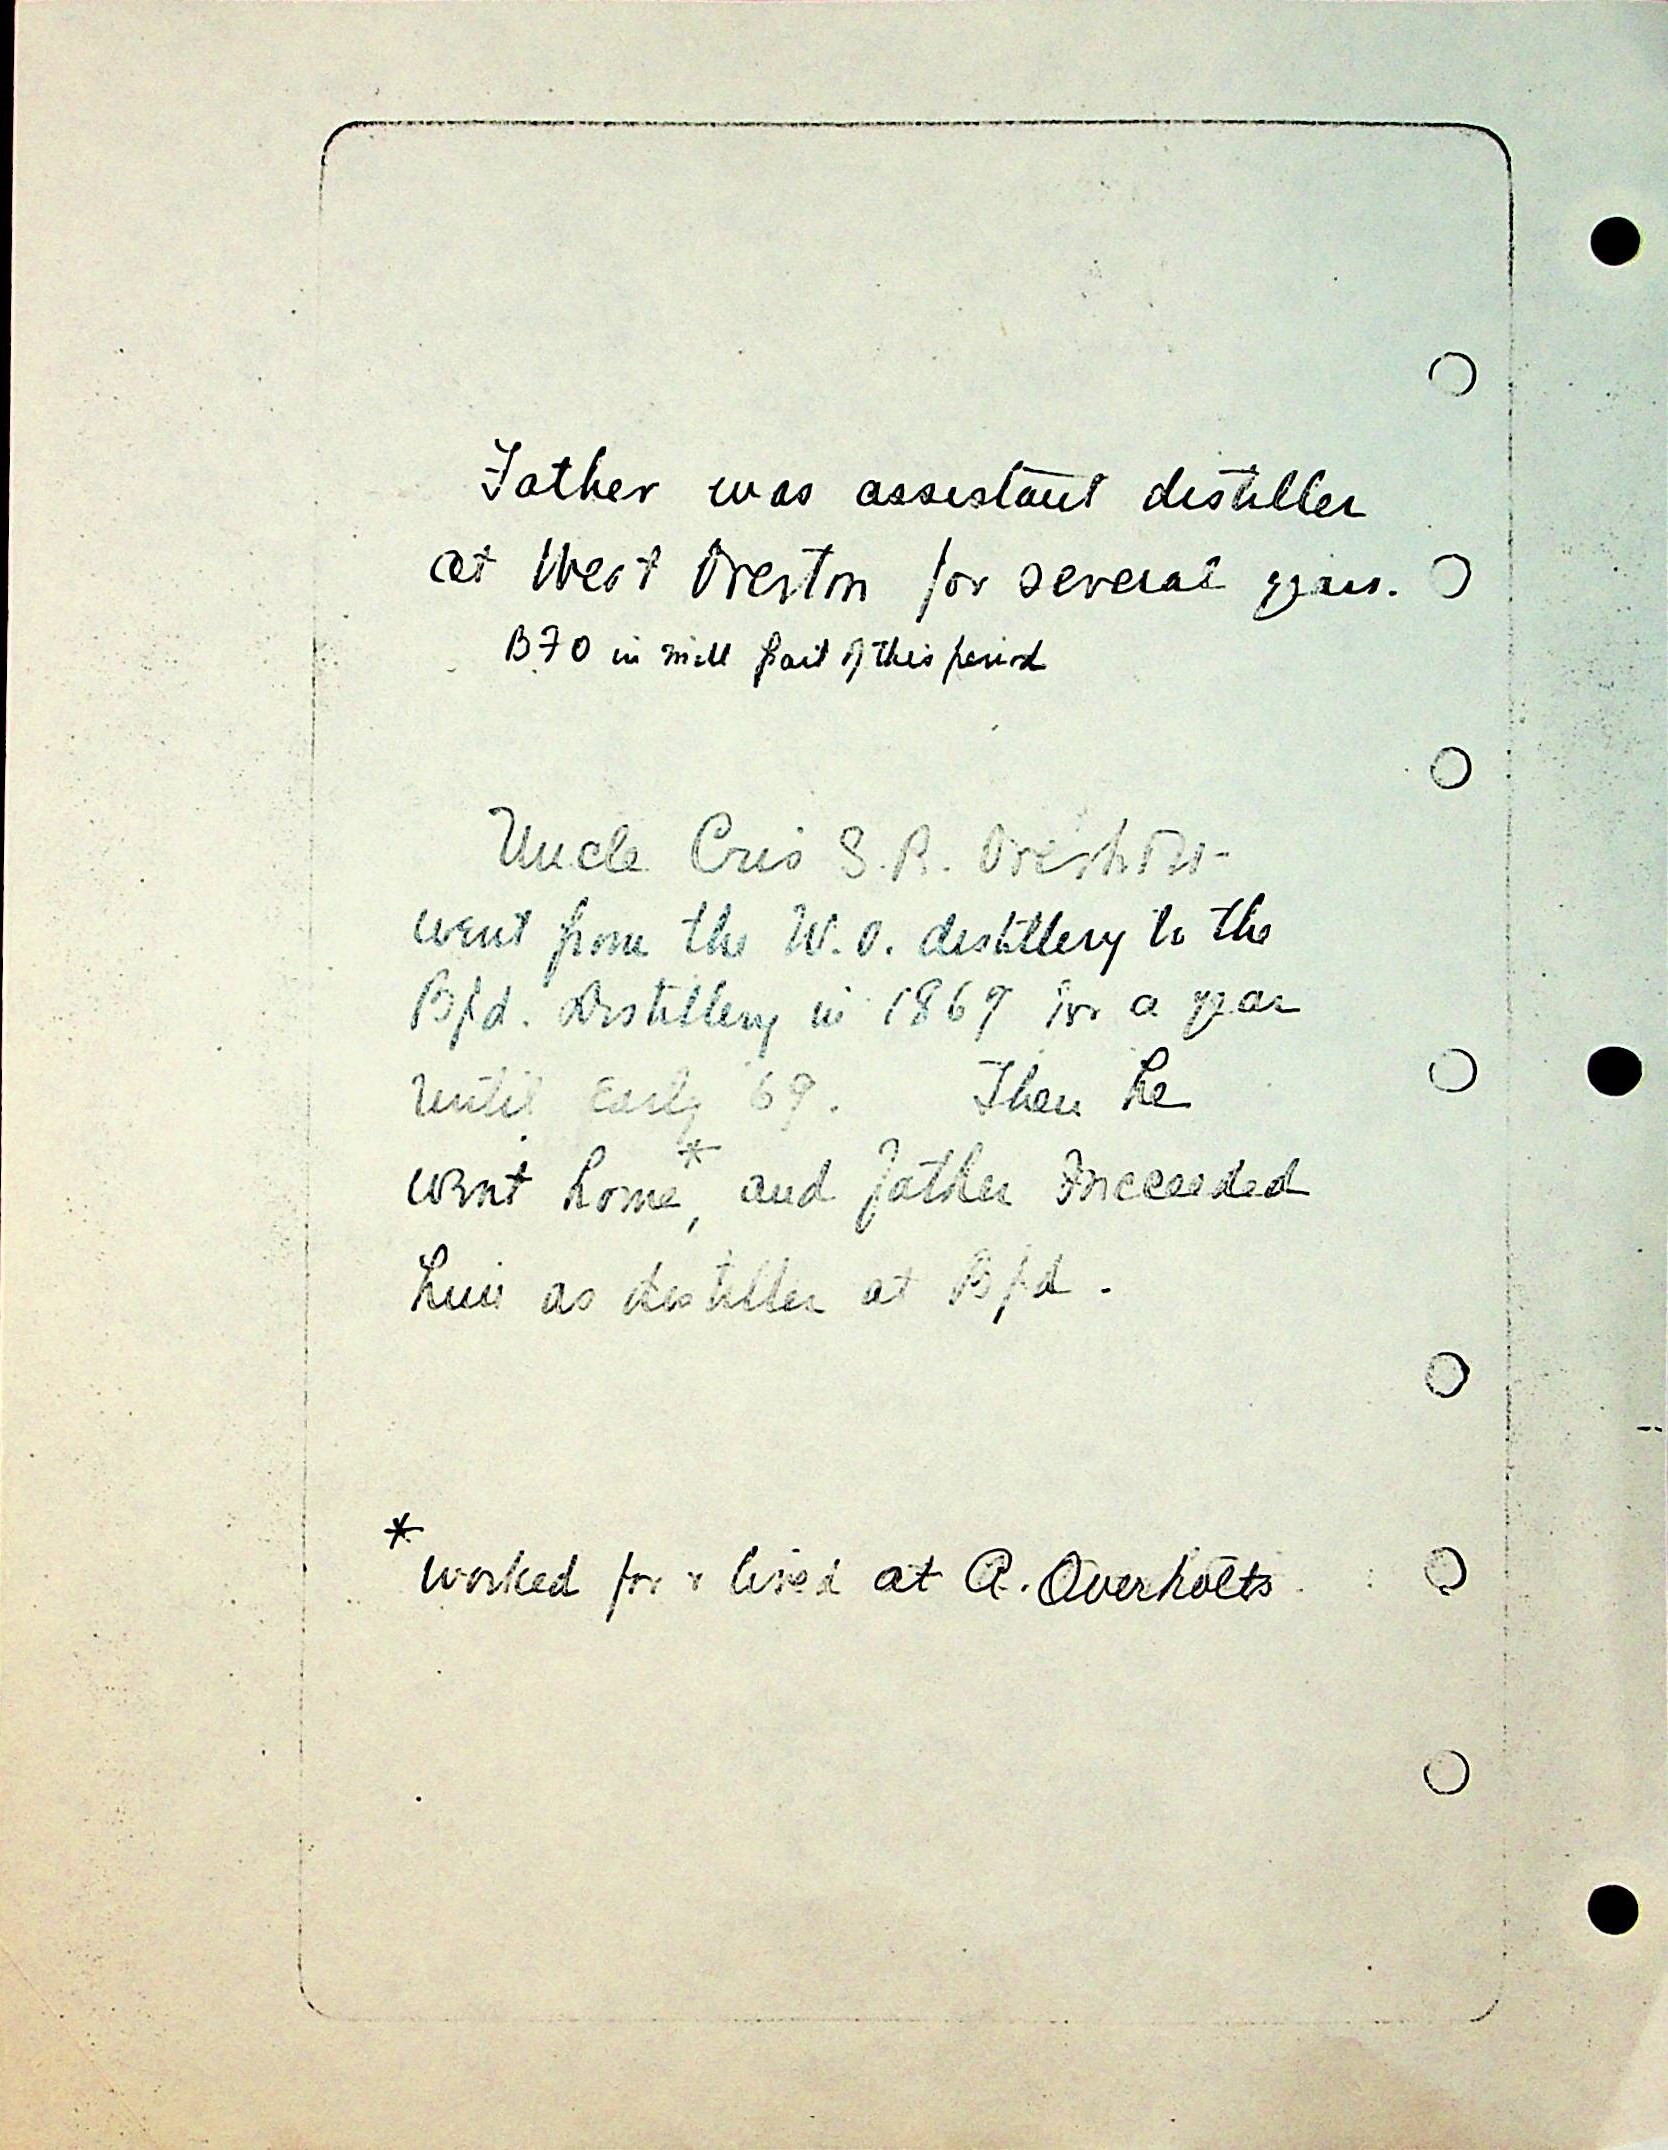 Father was assistant distiller
at West Overton for several years.
BFO in mill part of this period
Uncle Cris S.R. Overholt
went from the W.O. distillery to the
Bfd. Distillery in 1869 for a year
until early '69. Then he
went home*, and father succeeded
him as distiller at Bfd.
* worked for & lived at A. Overholts